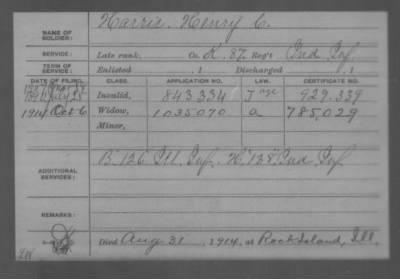 NAME OF SOLDIER: Harris, Henry C.
SERVICE: Late rank, Co. K, 87, Reg't Ind. Inf.
TERM OF SERVICE: Enlisted , 1 Discharged , 1
DATE OF FILING. CLASS. APPLICATION NO. LAW. CERTIFICATE NO.
Invalid, 843334 J age 929.339
1914 Oct 6 Widow, 1035070 a 785,029
Minor,
ADDITIONAL SERVICES: B. 126 Ill. Inf. "H" 138" Ind. Inf.
REMARKS:
Died Aug 31, 1914, at Rock Island, Ill.